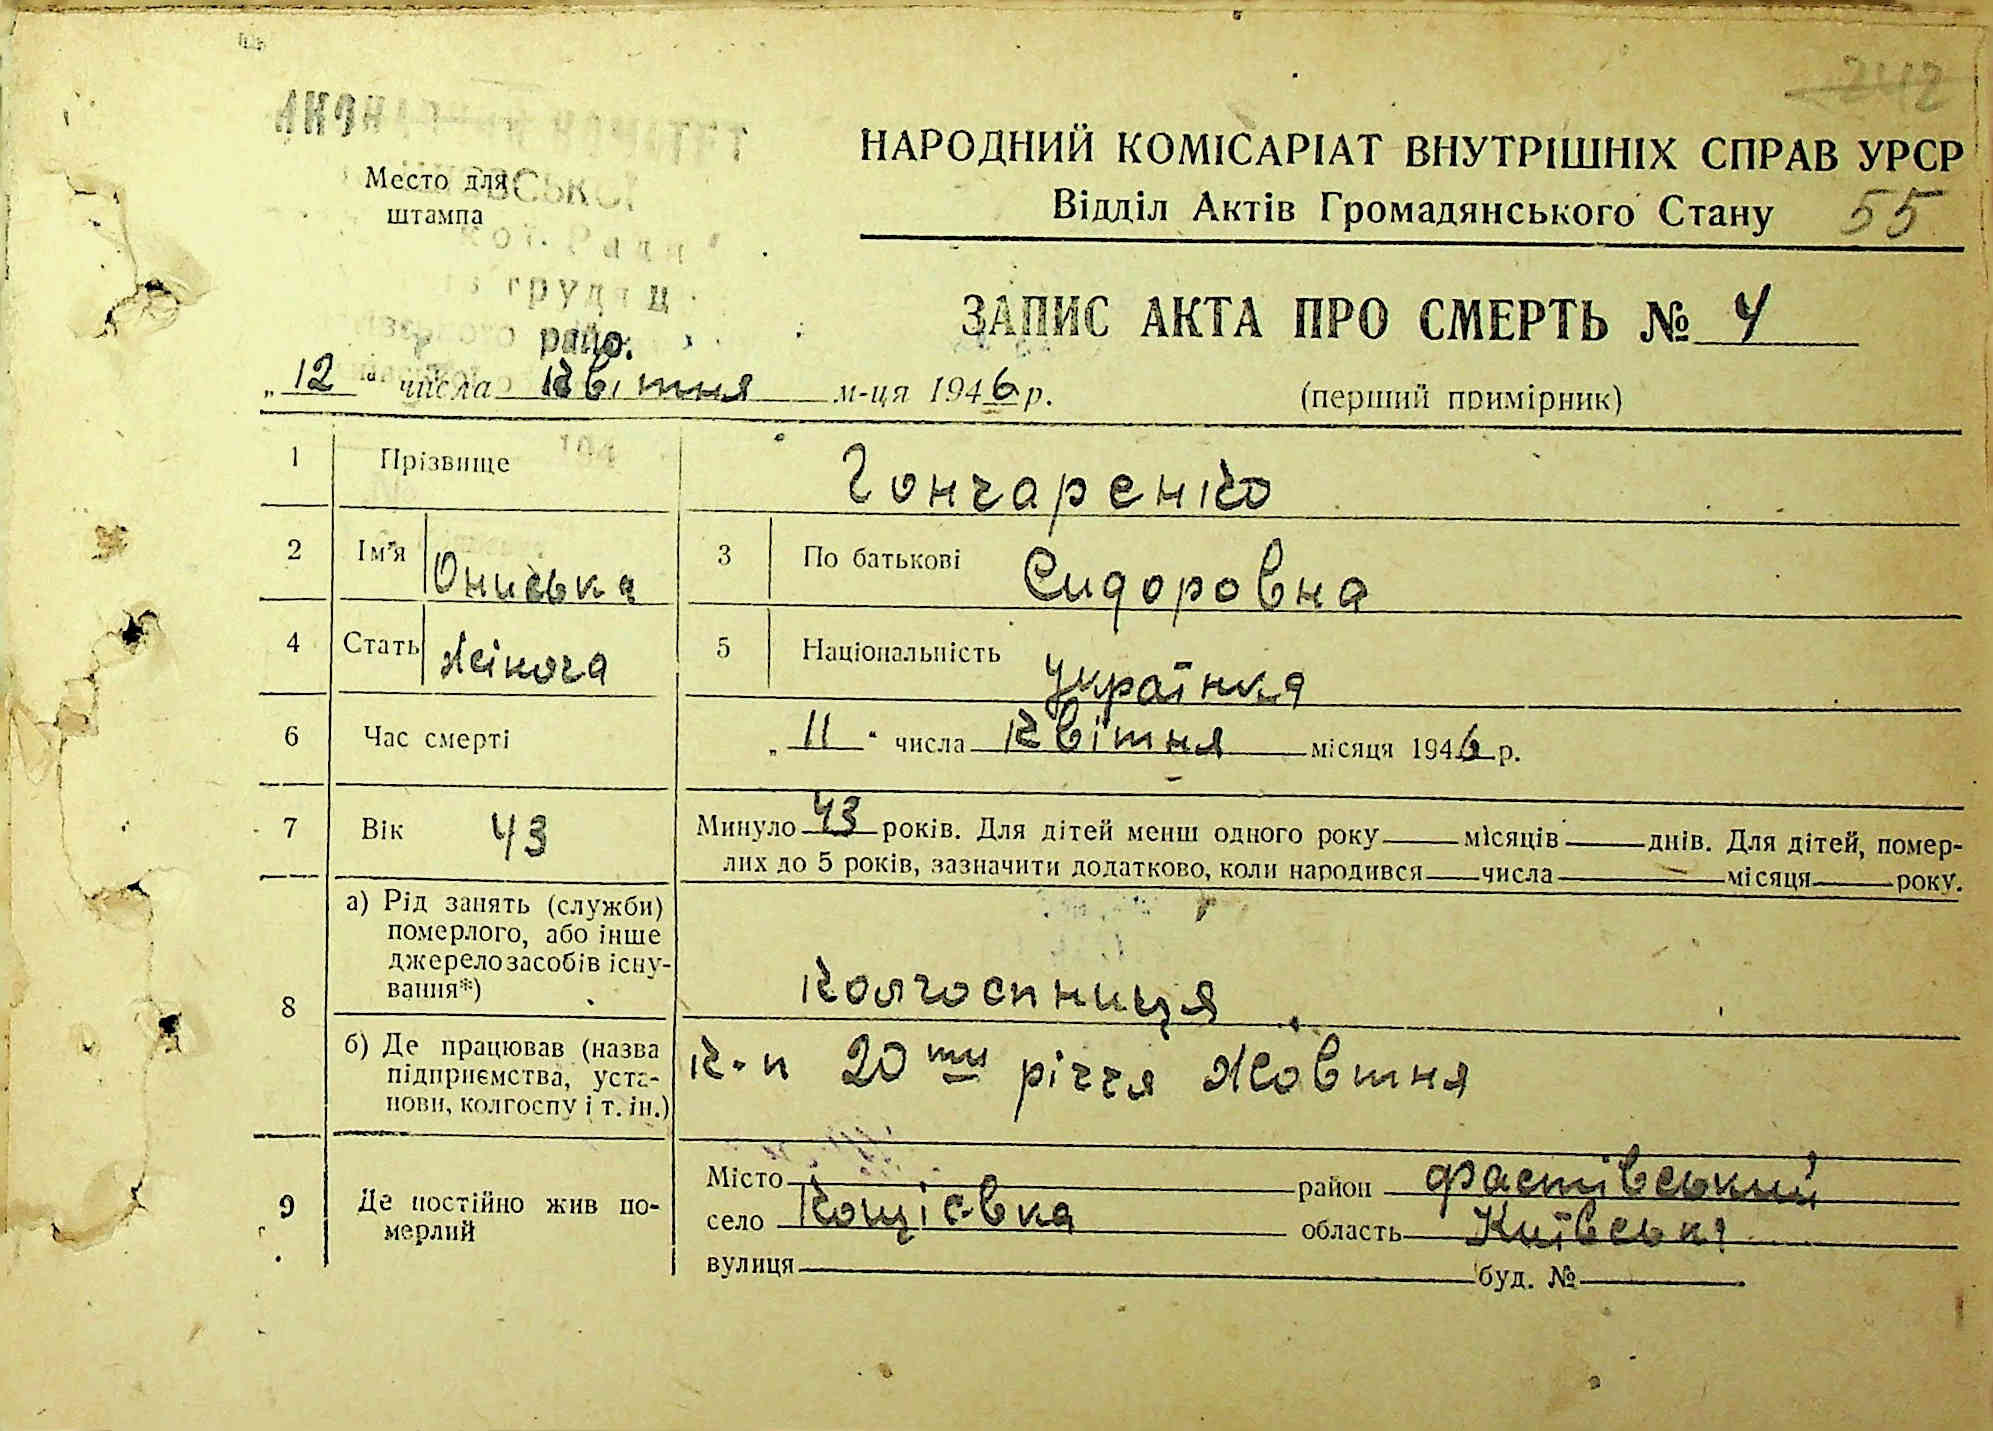 242
НАРОДНИЙ КОМІСАРІАТ ВНУТРІШНІХ СПРАВ УРСР
Место для
штампа
Відділ Актів Громадянського Стану 55
ЗАПИС АКТА ПРО СМЕРТЬ № 4
„12“ числа Квітня м-ця 1946 р. (перший примірник)
1 Прізвище Гончаренко
2 Ім'я Ониська 3 По батькові Сидоровна
4 Стать жіноча 5 Національність українка
6 Час смерті „11“ числа Квітня місяця 1946 р.
7 Вік 43 Минуло 43 років. Для дітей менш одного року місяців днів. Для дітей, помер-
лих до 5 років, зазначити додатково, коли народився числа місяця року.
8 а) Рід занять (служби)
померлого, або інше
джерело засобів існу-
вання*) Колгоспниця
б) Де працював (назва
підприємства, уста-
нови, колгоспу і т. ін.) К-п 20ти річчя Жовтня
9 Де постійно жив по-
мерлий
Місто район Фастівський
село Кощіївка область Київська
вулиця буд. №